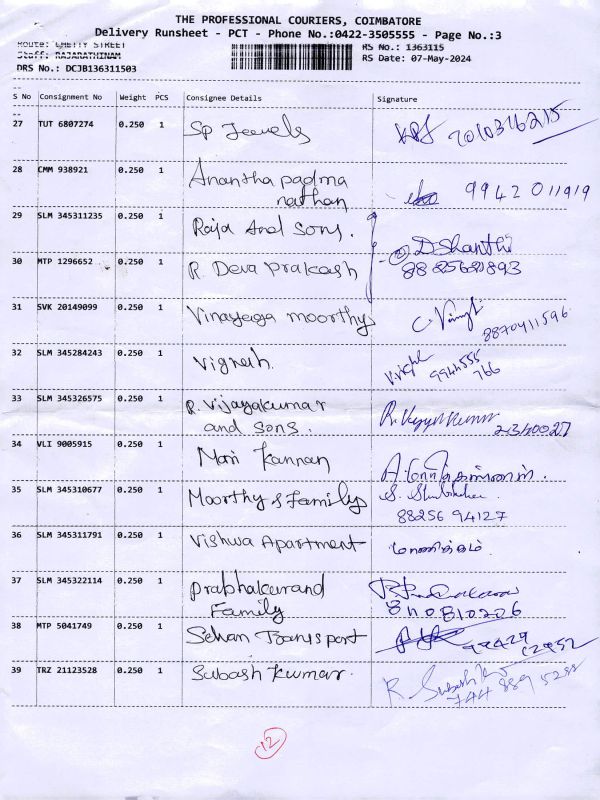 THE PROFESSIONAL COURIERS, COIMBATORE
Delivery Runsheet - PCT - Phone No.:0422-3505555 - Page No.:3
Route: CHETTY STREET
Staff: RAJARATHINAM
DRS No.: DCJB136311503
RS No.: 1363115
RS Date: 07-May-2024
S No Consignment No Weight PCS Consignee Details Signature
27 TUT 6807274 0.250 1 SP Jewels
28 CMM 938921 0.250 1 Anantha padma
nathan 9942011919
29 SLM 345311235 0.250 1 Raja And Sons.
30 MTP 1296652 0.250 1 R. Deva Prakash D Shanthi
31 SVK 20149099 0.250 1 Vinayaga moorthy
8870411596
32 SLM 345284243 0.250 1 Vignesh.
9944555
766
33 SLM 345326575 0.250 1 R. Vijayakumar
and sons.
34 VLI 9005915 0.250 1 Mari Kannan
35 SLM 345310677 0.250 1 Moorthy & Family
88256 94127
36 SLM 345311791 0.250 1 Vishwa Apartment மாணிக்கம்.
37 SLM 345322114 0.250 1 Prabhakar and
Family
38 MTP 5041749 0.250 1 Selvan Transport
39 TRZ 21123528 0.250 1 Subash kumar.
12